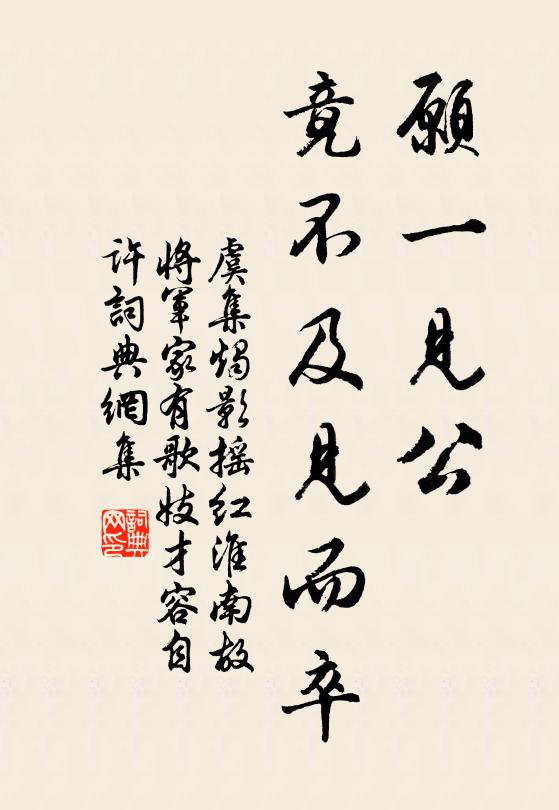 願一見公
竟不及見而卒
虞集燭影摇紅淮南故
將軍家有歌妓才容自
許詞典網集
詞典
网印